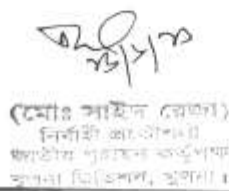 (মোঃ সাইদ রেজা)
নির্বাহী প্রকৌশলী
জাতীয় গৃহায়ন কর্তৃপক্ষ
খুলনা ডিভিশন, খুলনা।